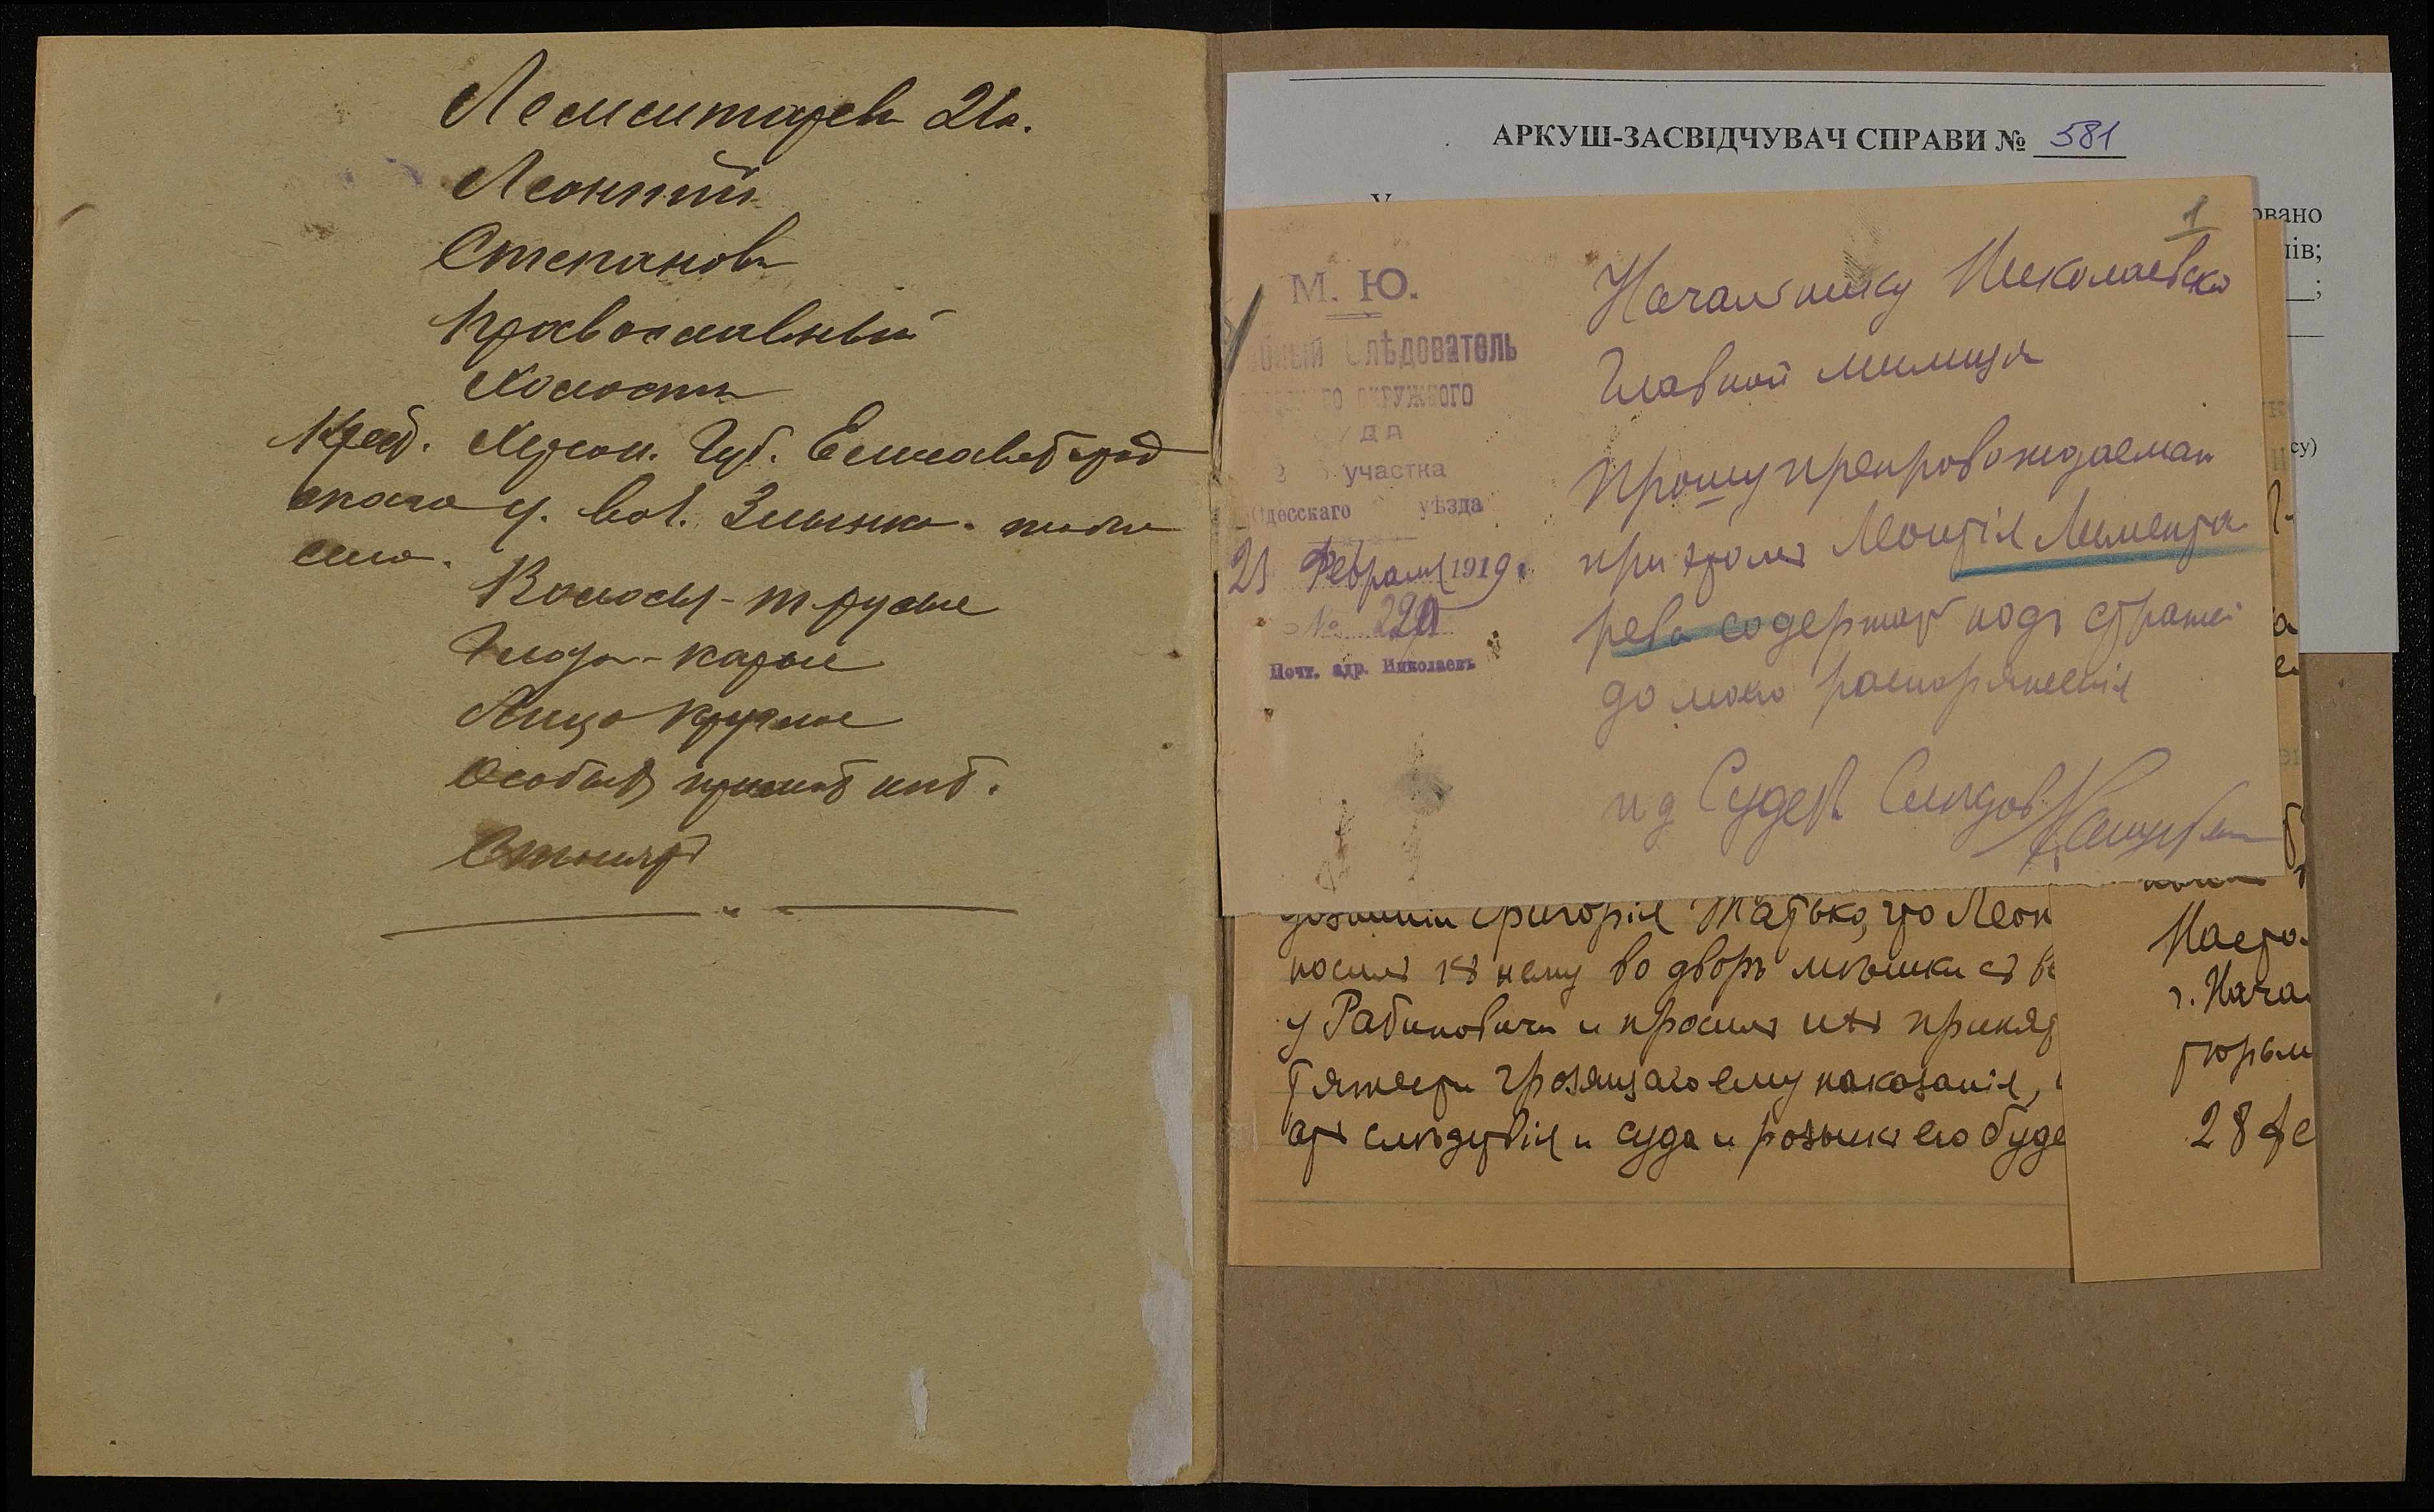 Лементарев 21л.
Леонтий
Степанов
Православный
Холост
Крест. Херсон. Губ. Елисаветград
скаго у. вол. Злынка. того же
села.
Волосы - т русые
Глаза - карые
Лицо круглое
Особых примет нет.
Столяр
АРКУШ-ЗАСВІДЧУВАЧ СПРАВИ № 581
У
овано
ів;
су)
1
М. Ю.
Слѣдователь
окружного
2 участка
Одесскаго уѣзда
23 Февраля 1919 г.
№ 220
Почт. адр. Николаевъ
Начальнику Николаевской
Главной милиции
Прошу препровождаемаго
при этом Леонтія Лемента
рева содержать подъ стражей
до моего распоряженія
и д Судеб Слѣдов
Григорія Татько, что Леон
носил к нему во дворъ мѣшки с
у Рабиновича и просил их приня
тяжести грозящаго ему наказанія,
от слѣдствія и суда и розыск его буде
г. Нача
тюрьм
28 фе